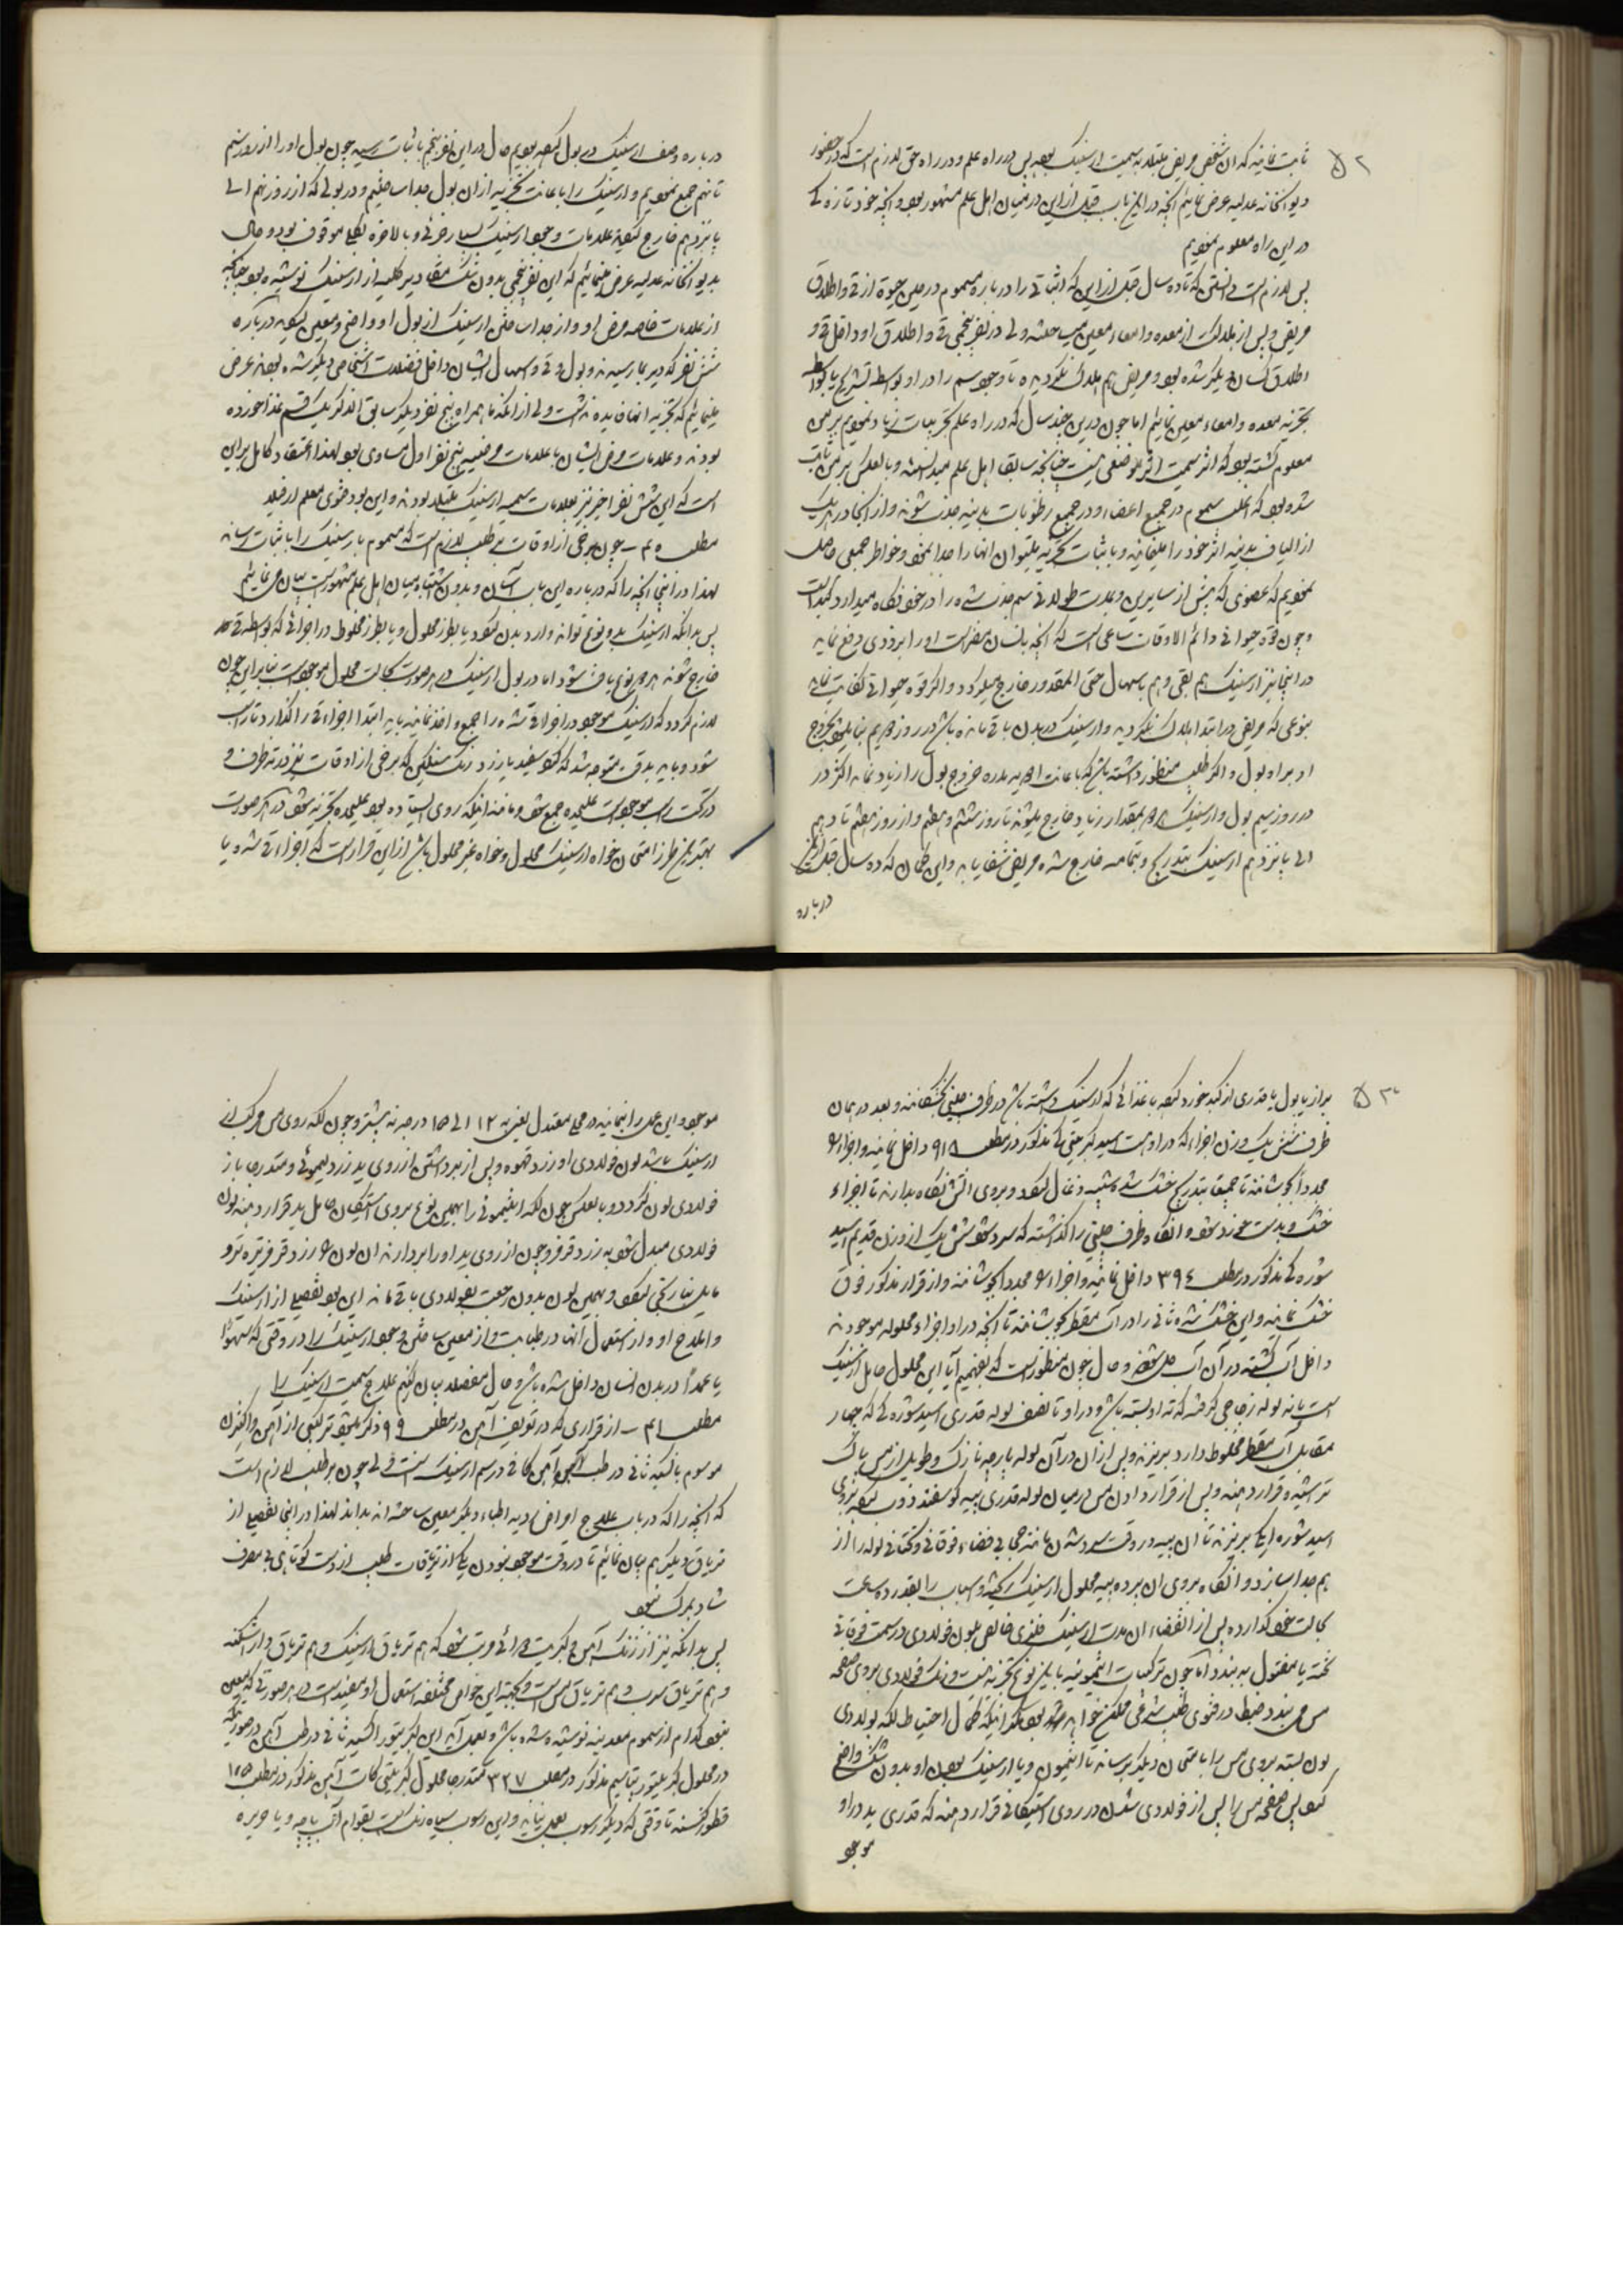 ۵۲
ثابت نمایند که ان شخص مریض مبتلا به سمیت ارسنیک بوده پس در راه علم و در راه حق لازم است که در حضور
دیوانخانه عدلیه عرض نمائیم انچه در این باب قبل از این در میان اهل علم مشهور بود و انچه خود تازه کی
در این راه معلوم نمودیم
پس لازم است دانستن که تا ده سال قبل از این که اثباتی را درباره مسموم در حین حیوة از قی و اطلاق
مریض و پس از هلاکت از معده و امعاء معین میساختند ولی در نفر پنجمی قی و اطلاق او داخل قی و
اطلاق کسان دیگر شده بود و مریض هم هلاک نگردیده تا وجود سم را در او بواسطه تشریح یا بواسطه
تجزیه معده و امعاء معین نمایم اما چون در این چند سال که در راه علم تجربیات زیاد نمودیم بر من
معلوم گشته بود که اثر سمیت اثر موضعی نیست چنانچه سابقا اهل علم میدانستند و بالعکس بر من ثابت
شده بود که اغلب سموم در جمیع اعضاء و در جمیع رطوبات بدنیه جذب شوند و از انجا در هر یک
از الیاف بدنیه اثر خود را مینمایند و باثبات تجزیه میتوان انها را جدا نمود و خواطر جمعی حاصل
نمودیم که عضوی که بیش از سایرین و مدت طولانی سم جذب شده را در خود نگاه میدارد کبد است
و چون قوه حیوانی دائم الاوقات ساعی است که انچه بانسان مضر است او را بزودی دفع نماید
در اینجا نیز ارسنیک هم بقی و هم باسهال حتی المقدور خارج میگردد و اگر قوه حیوانی کفایت نماید
بنوعی که مریض در ابتدا هلاک نگردید و ارسنیک در بدن باقی مانده باشد در روز دویم بنا میشود بخروج
او براه بول و اگر طبیب منظور داشته باشد که باعانت ادویه مدره خروج بول را زیاد نماید اکثر در
در روز سیم بول و ارسنیک هر دو بمقدار زیاد خارج میشوند تا روز ششم و هفتم و از روز هفتم تا دهم
الی پانزدهم ارسنیک بتدریج و بتمامه خارج شده مریض شفا یابد و این کمان که ده سال قبل از این
درباره
درباره وصف ارسنیک در بول نبوده بودیم حال در این نفر پنجم باثبات رسید چون بول او را از روز سیم
تا نهم جمع نمودیم و ارسنیک را باعانت تجزیه از ان بول جدا ساختیم و در بولی که از روز نهم الی
پانزدهم خارج میگردید علامات وجود ارسنیک بسیار جزئی و بالاخره بکلی موقوف بود و حال
بدیوانخانه عدلیه عرض مینمائیم که این نفر پنجمی بدون شک مقادیر کلیه از ارسنیک نوشیده بود چنانچه
از علامات خاصه مرض او و از جدا ساختن ارسنیک از بول او واضح و معین میگردد درباره
شش نفر که دیر بما رسیدند و بول و قی و اسهال ایشان داخل فضلات اشخاص دیگر شده بود عرض
مینمائیم که تجزیه انها فایده نداشت ولی از انکه ما همراه پنج نفر دیگر سابق الذکر یک قسم غذا خورده
بودند و علامات مرض ایشان با علامات مرضیه پنج نفر اول مساوی بود لهذا اعتقاد کامل بر این
است که این شش نفر اخیر نیز بعلامات سمیه ارسنیک مبتلا بودند و این بود فتوی معلم ارفیلا
مطلب ۴۰ – چون برخی از اوقات بر طبیب لازم است که مسموم بارسنیک را باثبات رساند
لهذا در اینجا انچه را که درباره این باب آسان و بدون اشتباه میان اهل علم مشهور است بیان مینمائیم
پس بدانکه ارسنیک بدو نوع تواند وارد بدن گردد یا بطرز محلول و یا بطرز مخلوط در اجزائی که بواسطه قی
خارج شوند هر دو نوع یافت شود اما در بول ارسنیک در هر صورت بحالت محلول موجود است بنابراین چون
لازم گردد که ارسنیک موجود در اجزای قی شده را جمع و اخذ نمایند باید ابتدا اجزاء قی را گذارد تا راسب
شود و باید بدقت متوجه شد که گرد سفید یا زرد رنگ سنگینی که برخی از اوقات نیز در ته ظرف و
در تحت راسب موجود است علیحده جمع شود و مانند اینکه روی ایستاده بود علیحده تجزیه شود در هر صورت
بهترین طرز امتحان خواه ارسنیک محلول و خواه غیر محلول باشد از این قرار است که اجزاء قی شده یا
۵۳
براز یا بول یا قدری از کبد خورد کرده یا غذائی که ارسنیک داشته باشد در ظرف چینی بخشکانند و بعد در همان
ظرف شش یک وزن اجزاء که در او است اسید کبریتی کی مذکور در مطلب ۹۱۸ داخل نمایند و اجزاء را
مجددا بجوشانند تا جمیعا بتدریج خشک شده شبیه ذغال گردد و بروی اتش نگاه بدارند تا اجزاء
خشک و بدست خورد شود و انگاه ظرف چینی را گذاشته که سرد شود شش یک از وزن قدیم اسید
شوره کی مذکور در مطلب ۳۹۴ داخل نمایند و اجزاء را مجددا بجوشانند و از قرار مذکور فوق
خشک نمایند و این خشک شده ثانی را در آب مقطر بجوشانند تا انچه در او اجزاء محلوله موجودند
داخل آب گشته در آن آب حل شوند و حال چون منظور است که بفهمیم آیا این محلول حامل ارسنیک
است یا نه لوله زجاجی گرفته که ته او بسته باشد و در او تا نصف لوله قدری اسید شوره کی که چهار
مقابل آب مقطر مخلوط دارد بریزند و پس از ان در آن لوله پارچه نازک و طویل از مس پاک
تراشیده قرار دهند و پس از قرار دادن مس در میان لوله قدری پیه کوسفند ذوب کرده بروی
اسید شوره ایکی بریزند تا ان پیه در وقت سرد شدن مانند حجابی فضاء فوقانی و تحتانی لوله را از
هم جدا سازد و انگاه بروی ان پرده پیه محلول ارسنیک ریخته و اسباب را بقدر ده ساعت
بحالت خود گذارده پس از انقضاء ان مدت ارسنیک فلزی خالص بلون فولادی در سمت فوقانی
تخته یا مفتول به بندد اما چون ترکیبات انتیمونیه باین نوع تجزیه شد و رنگ فولادی بروی صفحه
مس می بندد ضبط در فتوی طلب شرعی ممکن خواهد بود مگر اینکه کمال احتیاط لکه فولادی
لون بسته بروی مس را بامتحان دیگر برسانند تا انتیمون و یا ارسنیک بودن او بدون شک واضح
گردد پس صفحه مس را پس از فولادی شدن در روی استیکانی قرار دهند که قدری ید در او
موجود
موجود و این عمل را بنمایند در محلی معتدل یعنی به ۱۲ الی ۱۵ درجه نه بیشتر و چون لکه روی مس مرکب از
ارسنیک باشد لون فولادی او زرد قهوه و پس از برداشتن از روی ید زرد لیموئی و متدرجا باز
فولادی لون گردد و بالعکس چون لکه انتیمونی را بهمین نوع بروی استیکان حامل ید قرار دهند لون
فولادی مبدل شود به زرد قرمز و چون از روی ید او را بردارند ان لون زرد قرمز تیره تر و
مایل بنارنجی گردد و بهمین لون بدون رجعت بفولادی باقی ماند این بود تفصیل از ارسنیک
و املاح او و از استعمال آنها در طبابت و از معین ساختن وجود ارسنیک را در وقتی که سهوًا
یا عمدًا در بدن انسان داخل شده باشد و حال مفصلا بیان کنیم علاج سمیت ارسنیک را
مطلب ۴۱ – از قراری که در تعریف آهن در مطلب ۹۹ ذکر میشود ترکیبی از آهن و اکیژن
موسوم باکسید ثانی در طب آهن کافی در سم ارسنیک است ولی چون بر طلب لازم است
که انچه را که در باب علاج امراض ادیه اطباء دیگر معین ساخته اند بداند لهذا در اینجا تفصیل از
تریاق دیگر هم بیان نمائیم تا در وقت موجود نبودن یکی از تریاقات طبیب از دست کوتاهی بی مصرف
شاد بمرک نشود
پس بدانکه نیز از زنگ آهن و کبریت دوائی مرتب شود که هم تریاق ارسنیک و هم تریاق دار اشکنه
و هم تریاق سرب و هم تریاق مس است و بجهة این خواص مختلفه استعمال او مفید است در هر صورتی که معین
نبود کدام از سموم معدنیه نوشیده شده باشد و بعمل آید این کبریتور اکسید ثانی در طب آهن در صورتیکه
در محلول کبریتور پتاسیم مذکور در مطلب ۳۲۷ متدرجا محلول کبریتی کات آهن مذکور در مطلب ۱۰۵
قطور کنند تا وقتی که دیگر رسوب بعمل نیاید و این رسوب سیاه رنگ است بقوام آب پاچه و یا حریره